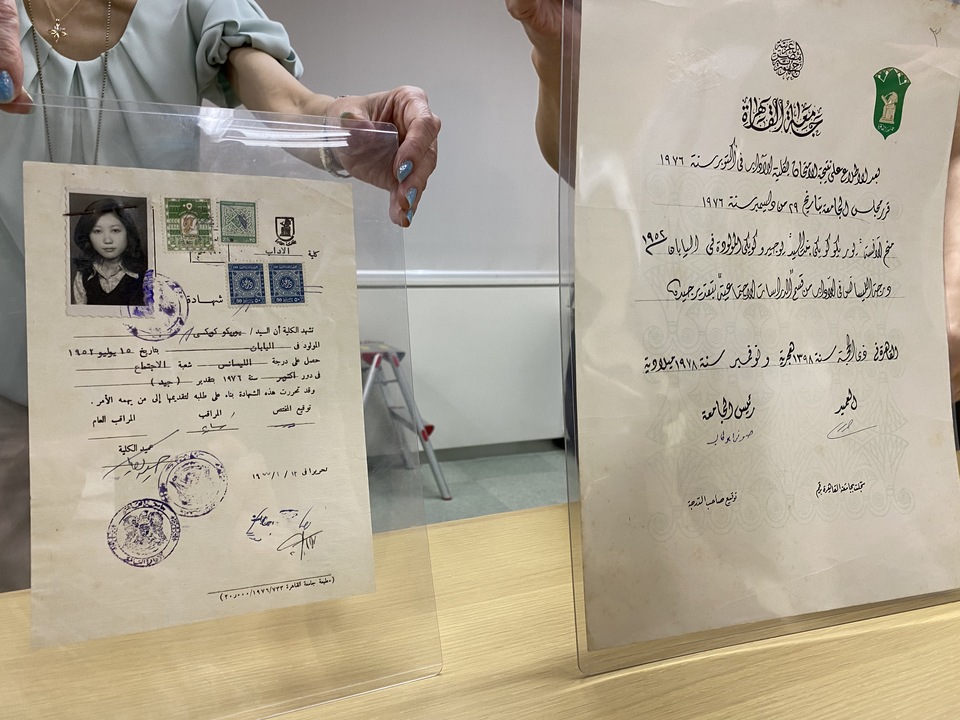 كلية الآداب
شهادة
تشهد الكلية أن السيد / يوريكو كويكى
المولود فى اليابان بتاريخ ١٥ يوليو ١٩٥٢
حصل على درجة الليسانس شعبة الاجتماع
فى دور اكتوبر سنة ١٩٧٦ بتقدير ( جيد )
وقد تحررت هذه الشهادة بناء على طلبه لتقديمها إلى من يهمه الأمر .
توقيع المختص المراقب المراقب العام
عميد الكلية
تحريرا فى
( مطبعة جامعة القاهرة ١٩٧٦/٧٣٣/٢٠٠٠٠ )
٢
جامعة القاهرة
بعد الاطلاع على نتيجة الامتحان لكلية الآداب فى أكتوبر سنة ١٩٧٦
قرر مجلس الجامعة بتاريخ ٢٩ من ديسمبر سنة ١٩٧٦
منح الآنسة / يوريكو كويكى المولودة فى اليابان ١٩٥٢
درجة الليسانس فى الآداب من قسم الدراسات الاجتماعية بتقدير جيد
القاهرة فى ذى الحجة سنة ١٣٩٨ هجرية و نوفمبر سنة ١٩٧٨ ميلادية
العميد رئيس الجامعة
سجلت بجامعة القاهرة برقم توقيع صاحب الدرجة